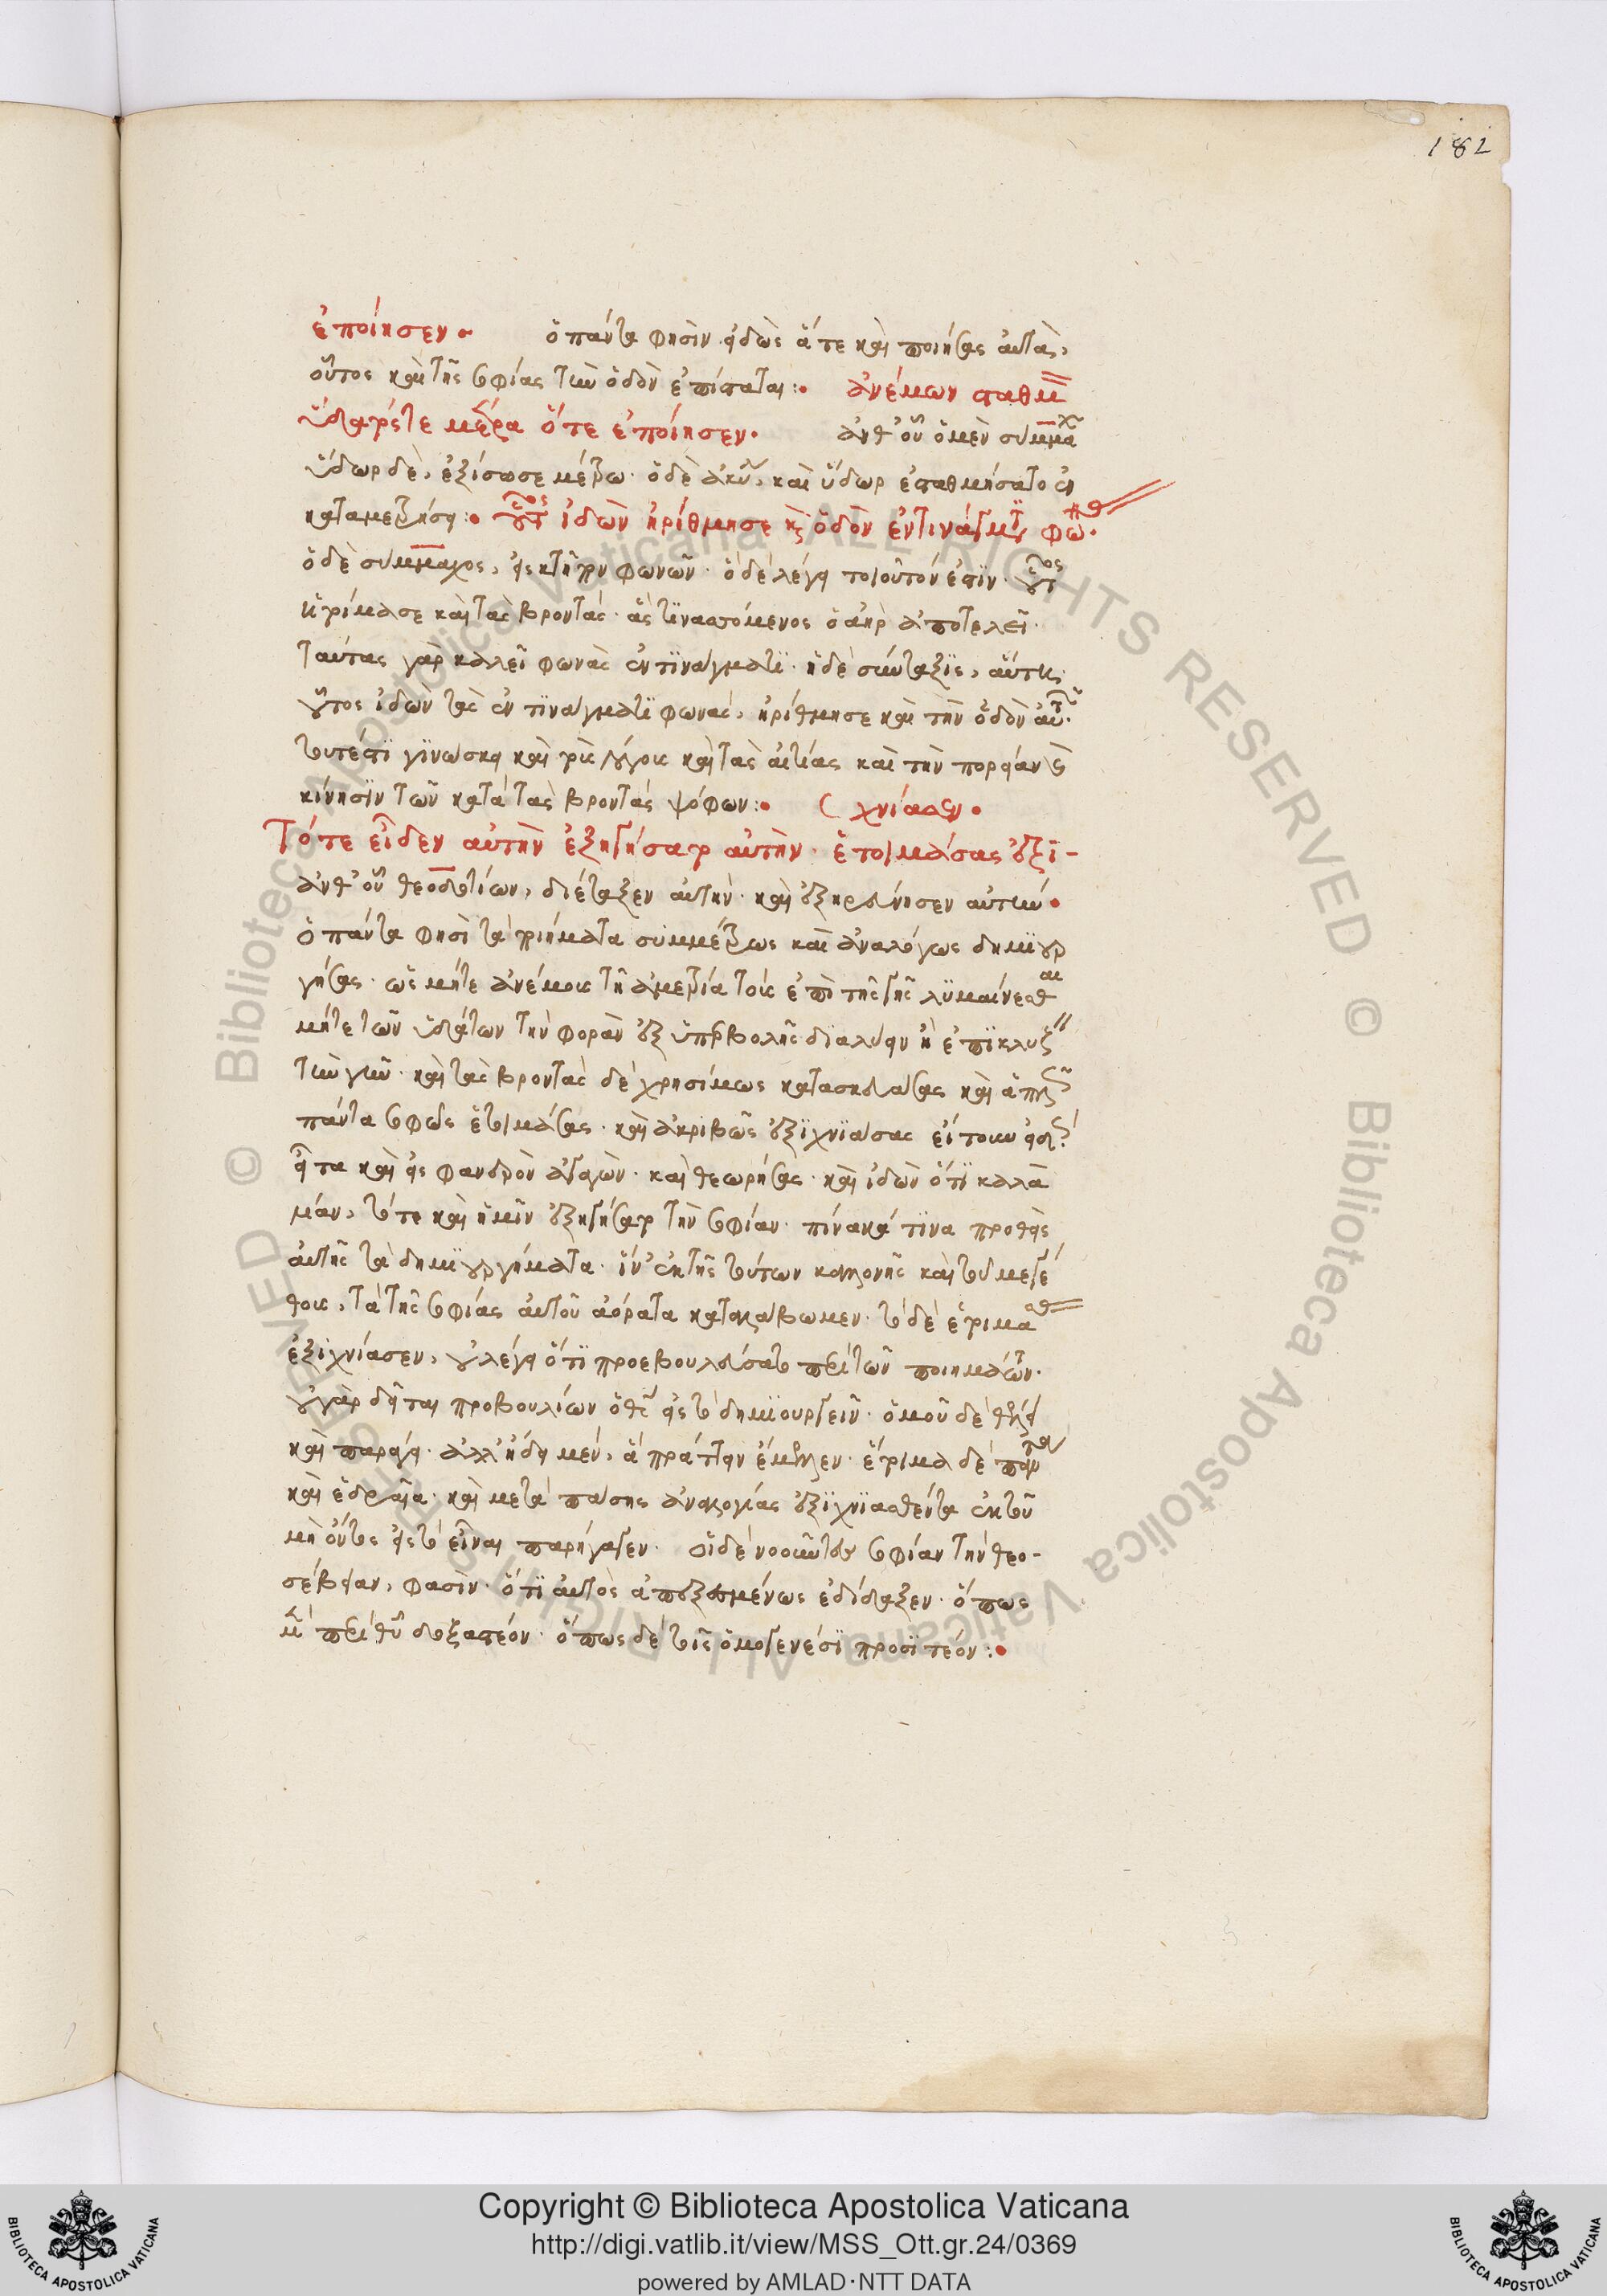 182
ἐποίησεν· ὁ πάντα φησὶν εἰδὼς ἅτε καὶ ποιήσας αὐτὰ,
οὗτος καὶ τῆς σοφίας τὴν ὁδὸν ἐπίσταται: ἀνέμων σταθμ
ὕδατός τε μέτρα ὅτε ἐποίησεν· ἀνθ' οὗ ὁ μὲν σύμμαχ
ὕδωρ δὲ, ἐξίσωσε μέτρω· ὁ δὲ ἀκύ, καὶ ὕδωρ ἐσταθμήσατο ἐν
καταμετρήσει: οὕτος ἰδὼν ἠρίθμησε κ ὁδὸν ἐν τινάγματι φω
ὁ δὲ σύμμαχος, φωνῶν· ὃ δὲ λέγει τοιοῦτόν ἐστιν· οὕτος
καὶ τὰς βροντάς· ἃς τινασσόμενος ὁ ἀὴρ ἀποτελεῖ·
ταύτας γὰρ καλεῖ φωνὰς ἐν τινάγματι· ἡ δὲ σύνταξις, αὕτη·
οὗτος ἰδὼν τὰς ἐν τινάγματι φωνὰς, ἠρίθμησε καὶ τὴν ὁδὸν αὐτ
τουτέστι γινώσκει καὶ τοὺς λόγους καὶ τὰς αἰτίας καὶ τὴν πορείαν
κίνησιν τῶν κατὰ τὰς βροντὰς ψόφων: χνίασεν·
Τότε εἶδεν αὐτὴν ἐξηγήσατο αὐτὴν· ἑτοιμάσας ἐξι-
ἀνθ' οὗ θεοδοτίων, διέταξεν αὐτήν· καὶ ἐξηρεύνησεν αὐτήν
ὁ πάντα φησὶ τὰ ποιήματα συμμέτρως καὶ ἀναλόγως δημιουρ
γήσας· ὡς μήτε ἀνέμοις τῆ ἀμετρία τοῖς ἐπὶ τῆς γῆς λυμαίνεσθαι
μήτε τῶν ὑδάτων τὴν φορὰν ἐξ ὑπερβολῆς διαλύειν ἢ ἐπικλύζ
τὴν γῆν· καὶ τὰς βροντὰς δὲ χρησίμως κατασκευάσας καὶ ἁπλ
πάντα σοφῶς ἑτοιμάσας· καὶ ἀκριβῶς ἐξιχνιάσας
εἶτα καὶ εἰς φανερὸν ἀγαγὼν· καὶ θεωρήσας· καὶ ἰδὼν ὅτι καλὰ
λίαν, τότε καὶ ἡμῖν ἐξηγήσατο τὴν σοφίαν· πίνακά τινα προθεὶς
αὐτῆς τὰ δημιουργήματα· ἵν' ἐκ τῆς τούτων καλλονῆς καὶ τοῦ μεγέ
θους, τὰ τῆς σοφίας αὐτοῦ ἀόρατα καταλάβωμεν· τὸ δὲ ἑτοιμασ
ἐξιχνίασεν, οὐ λέγει ὅτι προεβουλεύσατο περὶ τῶν ποιημάτων·
οὐ γὰρ δεῖται προβουλίων ὁ θς εἰς τὸ δημιουργεῖν· ὁμοῦ δὲ θέλει
καὶ παράγει· ἀλλ' ἤδει μὲν, ἃ πράττειν ἔμελλεν· ἕτοιμα δὲ
καὶ ἑδραῖα· καὶ μετὰ πάσης ἀναλογίας ἐξιχνιασθέντα ἐκ τοῦ
μὴ ὄντος εἰς τὸ εἶναι παρήγαγεν· οἱ δὲ νοοῦντες σοφίαν τὴν θεο-
σέβειαν, φασὶν· ὅτι αὐτὸς ἐδίδαξεν· ὅπως
μ περὶ θυ δοξαστέον· ὅπως δὲ τοῖς ὁμογενέσι προσιτέον:
Copyright © Biblioteca Apostolica Vaticana
http://digi.vatlib.it/view/MSS_Ott.gr.24/0369
powered by AMLAD·NTT DATA